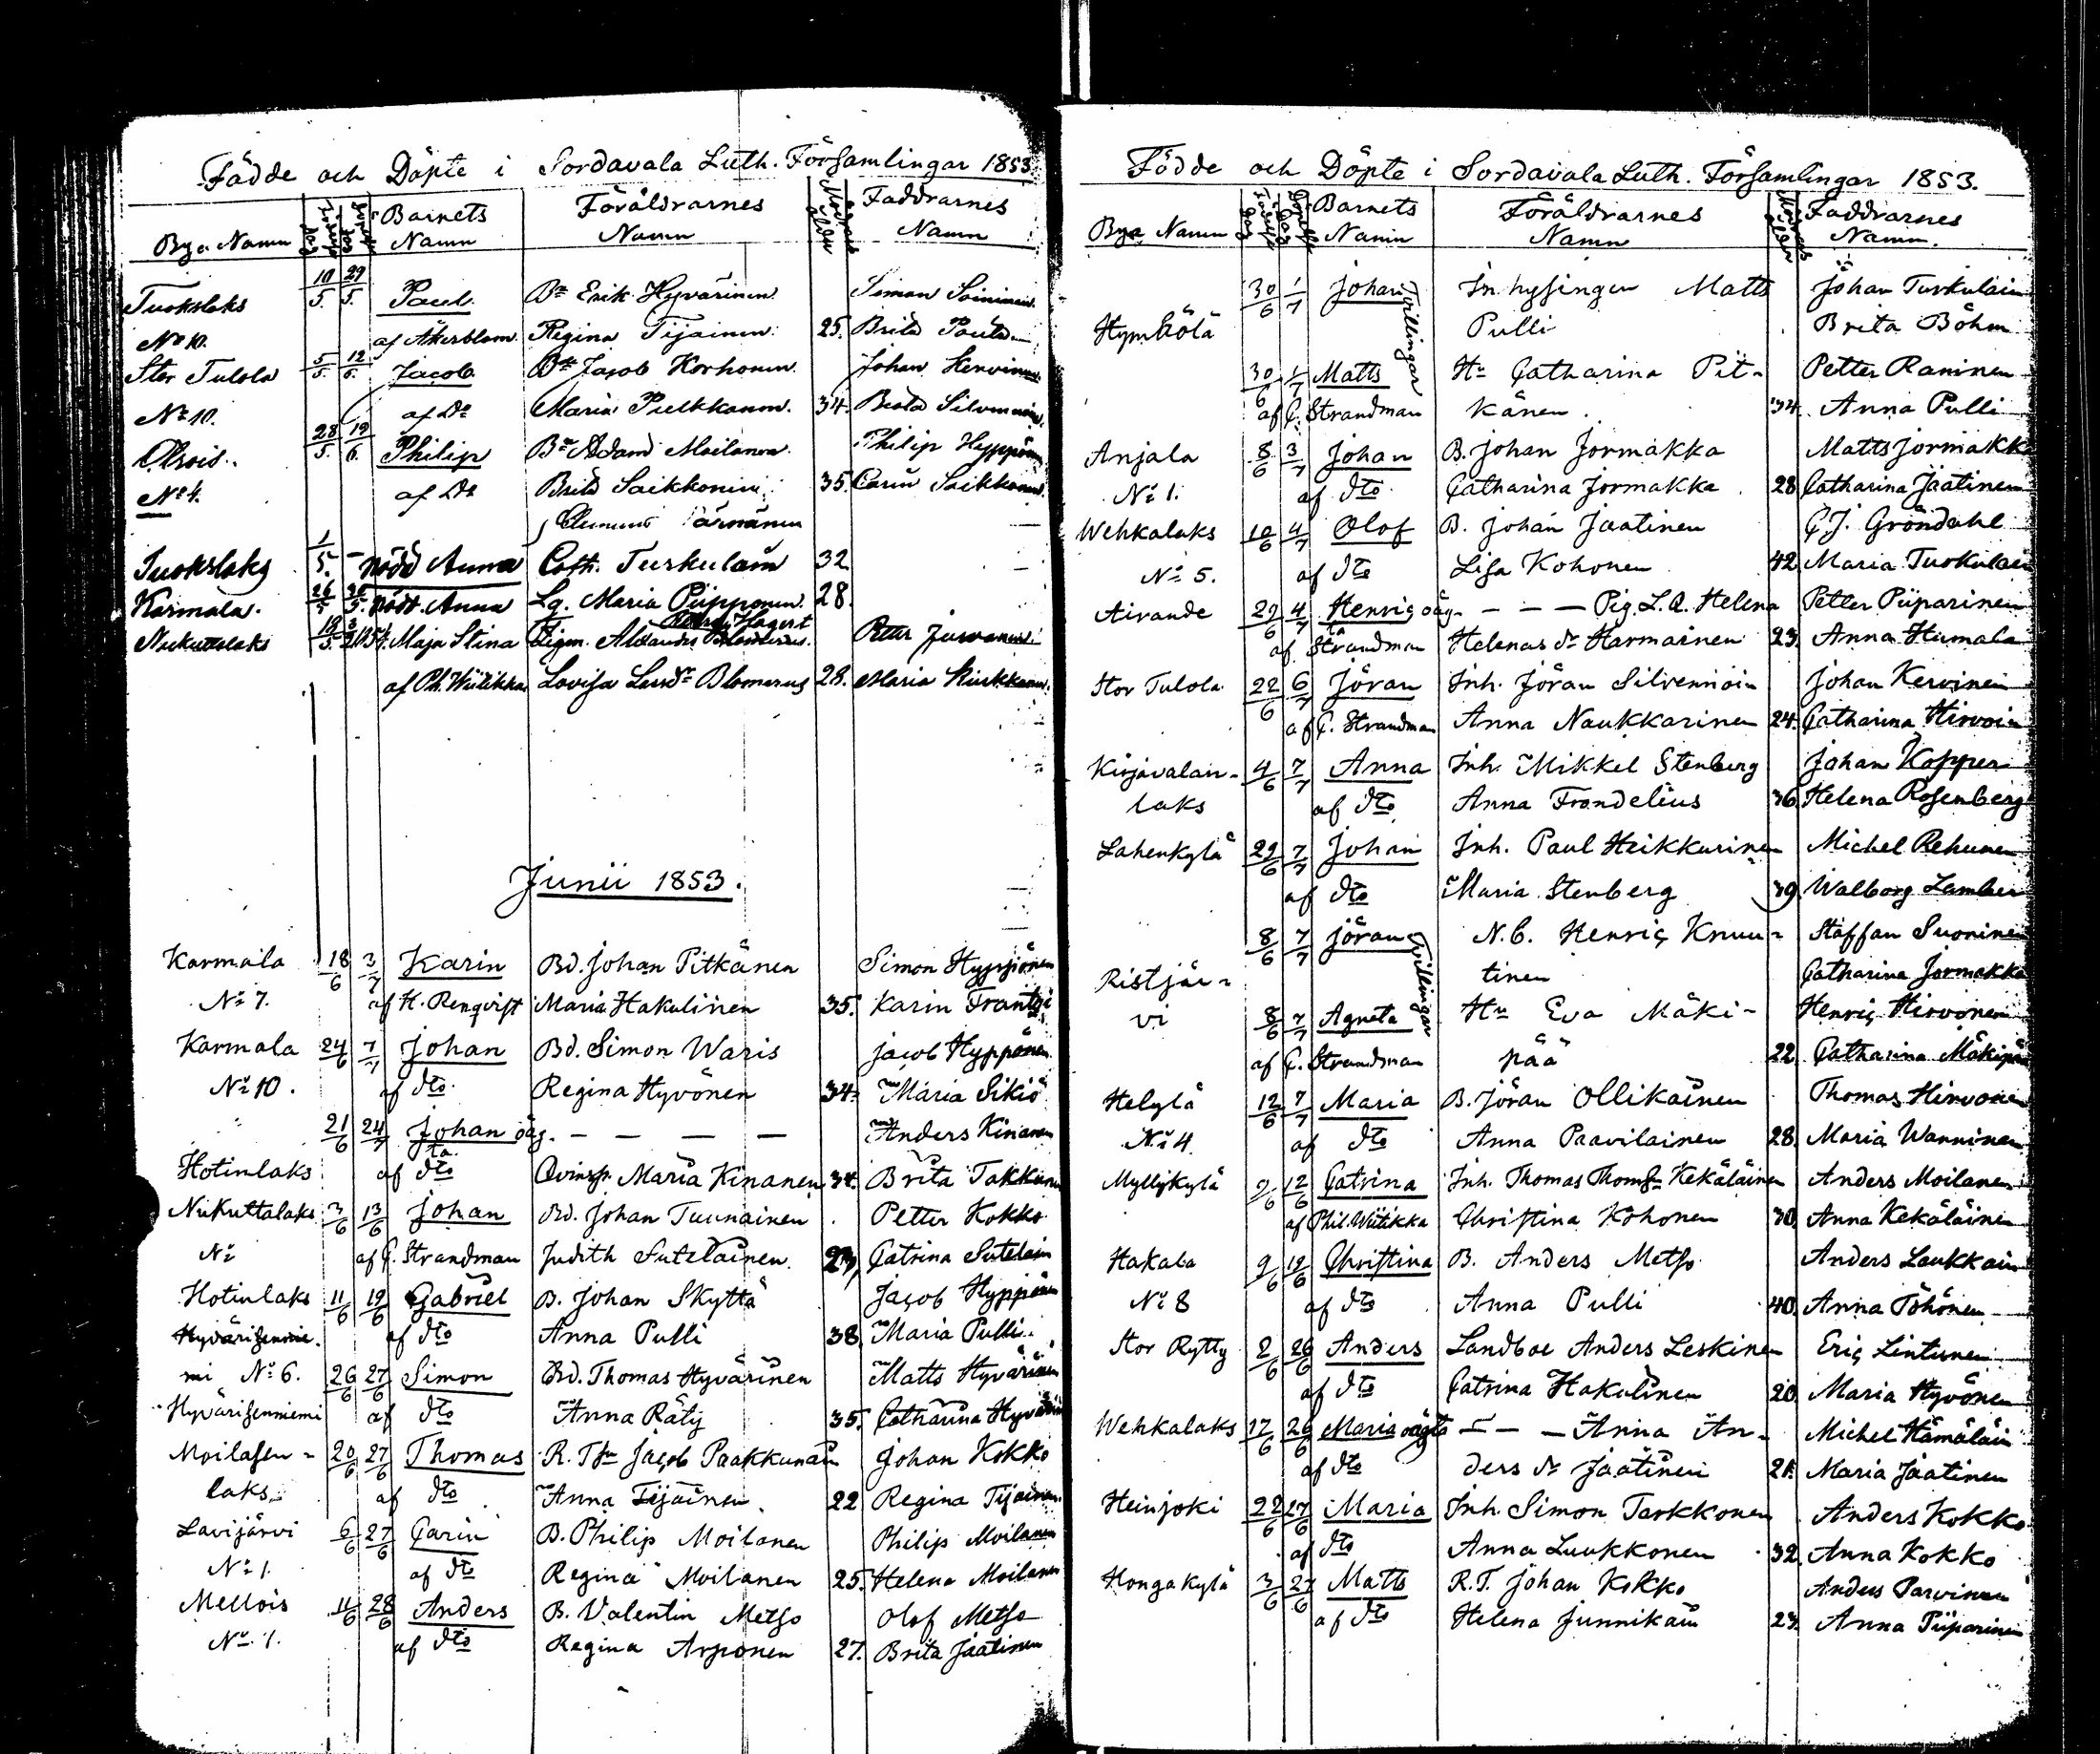 Födde och Döpte i Sordavala Luth. Församlingar 1853
Bya Namn Barnets Namn Föräldrarnes Namn Faddrarnes Namn
Tuokslaks 10/5 29/5 Paul Bn Erik Hyvärinen Simon Soininen
No 10. af Åkerblom Regina Tijainen 25. Brita
Stor Tulola 5/5 12/6 Jacob Bn Jacob Korhonen Johan Kervinen
No 10. af Do Maria Pulkkanen 34.
28/5 19/6 Philip Bn Adam Moilanen Philip Hyppönen
No 4. af Do Brita Saikkonen 35. Carin Saikkonen
Tuokslaks 1/5 – nödd Anna Cath. Turkulain 32
Karmala. nödd. Anna Lg. Maria Piipponen. 28.
Nukuttalaks Maja Stina Petter
af Ph. Wiitikka Lovisa Blomerus 28. Maria
Junii 1853.
Karmala 18/6 3/7 Karin Bd. Johan Pitkänen Simon Hyppönen
No 7. af H. Renqvist Maria Hakulinen 35. Karin
Karmala 24/6 7/7 Johan Bd. Simon Waris Jacob Hyppönen
No 10. af dto Regina Hyvönen 34. Maria Sikiö
21/6 24/7 Johan oäg. – – – – Anders Kinanen
Hotinlaks af dto Maria Kinanen 34. Brita Takkunen
Nukuttalaks 3/6 13/6 Johan Bd. Johan Tuunainen Petter Kokko
No af C. Strandman Judith Sutelainen. 23, Catrina Sutelain
Hotinlaks 11/6 19/6 Gabriel B. Johan Skyttä Jacob Hyppönen
af dto Anna Pulli 38. Maria Pulli.
mi No 6. 26/6 27/6 Simon Bd. Thomas Hyvärinen Matts Hyvärinen
Hyvärisenniemi af dto Anna Räty 35. Catharina Hyvärin
Moilasen- 20/6 27/6 Thomas R. Tr Jacob Paakkunain Johan Kokko
laks. af dto Anna Tijainen. 22 Regina Tijainen
Lavijärvi 6/6 27/6 Carin B. Philip Moilanen Philip Moilanen
No 1. af dto Regina Moilanen 25. Helena Moilanen
Mellois 11/6 28/6 Anders B. Valentin Metso Olof Metso
No 1. af dto Regina Arponen 27. Brita Jaatinen
Födde och Döpte i Sordavala Luth. Församlingar 1853.
Bya Namn Barnets Namn Föräldrarnes Namn Faddrarnes Namn.
30/6 1/7 Johan Tvillingar Inhysingen Matts Johan Turkulain
Hymbölä Pulli Brita Böhm
30/6 1/7 Matts Hu Catharina Pit- Petter Raninen
af C. Strandman känen. 34. Anna Pulli
Anjala 8/6 3/7 Johan B. Johan Jormakka Matts Jormakk
No 1. af dto Catharina Jormakka 28 Catharina Jaatinen
Wehkalaks 10/6 4/7 Olof B. Johan Jaatinen C J. Gröndahl
No 5. af dto Lisa Kohonen 42. Maria Turkulain
Airande 29/6 4/7 Henric oäg- – – – Pig. L. A. Helena Petter Piiparinen
af Strandman Helenas dr Harmainen 23. Anna Humala
Stor Tulola 22/6 6/7 Jöran Inh. Jöran Silvennoin Johan Kervinen
af C. Strandman Anna Naukkarinen 24. Catharina Hirvoin
Kirjavalan- 4/6 7/7 Anna Inh. Mikkel Stenberg Johan Kopper
laks af dto Anna Frondelius 36. Helena Rosenberg
Lahenkylä 29/6 7/7 Johan Inh. Paul Heikkurinen Michel Rehunen
af dto Maria Stenberg 39. Walborg Lamber
8/6 7/7 Jöran Tvillingar N. B. Henric Knuu- Staffan Suoninen
Ristjär- tinen Catharina Jormakka
vi 8/6 7/7 Agneta Hu Eva Mäki- Henric Hirvonen
af C. Strandman pää 22. Catharina Mäkipää
Helylä 12/6 7/7 Maria B. Jöran Ollikainen Thomas Hirvonen
No 4. af dto Anna Paavilainen 28. Maria Wanninen
Myllykylä 9/6 12/6 Catrina Inh. Thomas Thomsn Kekäläinen Anders Moilanen
af Phil. Wiitikka Christina Kohonen 30. Anna Kekäläinen
Hakala 9/6 12/6 Christina B. Anders Metso Anders Laukkain
No 8 af dto Anna Pulli 40. Anna Töhönen
Stor Rytty 2/6 26/6 Anders Landboe Anders Leskinen Eric Lintunen
af dto Catrina Hakulinen 20. Maria Hyvönen
Wehkalaks 17/6 26/6 Maria oägta – – – Anna An- Michel Hämäläin
af dto ders dr Jaatinen 21. Maria Jaatinen
Heinjoki 22/6 27/6 Maria Inh. Simon Tarkkonen Anders Kokko
af dto Anna Luukkonen 32. Anna Kokko
Honga kylä 3/6 27/6 Matts R. T. Johan Kokko Anders Parvinen
af dto Helena Junnikain 23. Anna Piiparinen